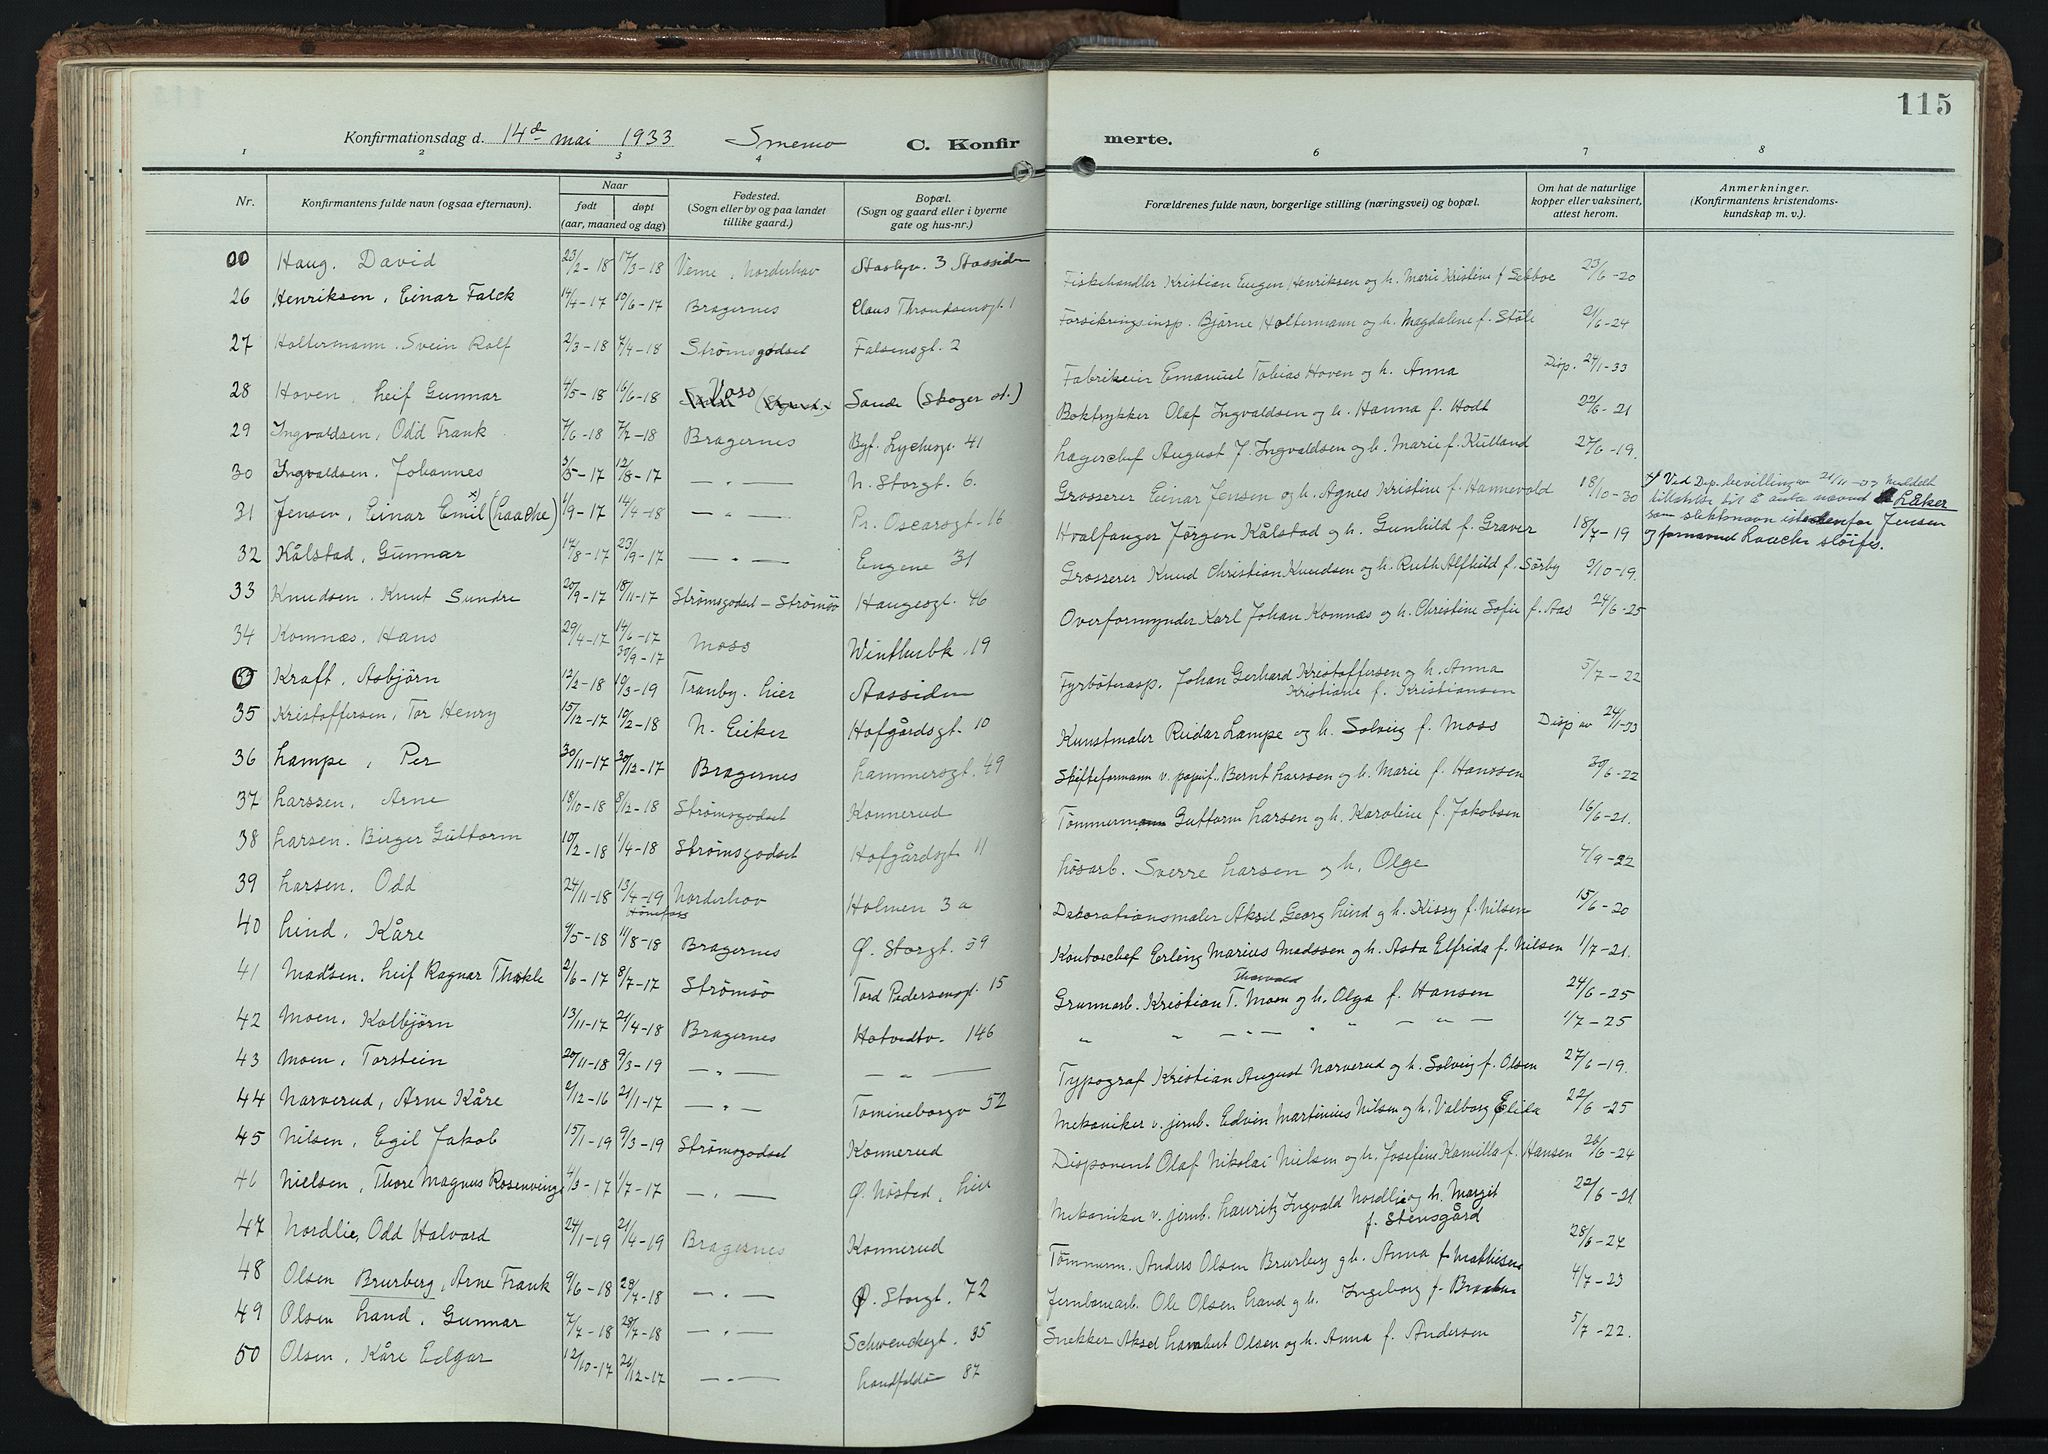 115
Konfirmationsdag d. 14de mai 1933
C. Konfirmerte.
1 2 3 4 5 6 7 8
Nr.
Konfirmantens fulde navn (ogsaa efternavn).
Naar
født døpt
(aar, maaned og dag)
Fødested.
(Sogn eller by og paa landet
tillike gaard.)
Bopæl.
(Sogn og gaard eller i byerne
gate og hus-nr.)
Forældrenes fulde navn, borgerlige stilling (næringsvei) og bopæl.
Om hat de naturlige
kopper eller vaksinert,
attest herom.
Anmerkninger.
(Konfirmantens kristendoms-
kundskap m. v.)
Haug, David 23/2-18 17/3-18 Norderhov
26 Henriksen, Einar Falck 14/4-17 10/6-17 Bragernes Claus Throndsensgt. 1 Fiskehandler Kristian Eugen Henriksen og h. Marie Kristine f. 23/6-20
27 Holtermann, Svein Rolf 2/3-18 7/4-18 Strømsgodset Falsensgt. 2 Forsikringsinsp. Bjarne Holtermann og h. Magdalene f. Støle 21/6-24
28 Hoven, Leif Gunnar 4/5-18 16/6-18 Voss Sande (Skoger st.) Fabrikeier Emanuel Tobias Hoven og h. Anna Disp. 24/1-33
29 Ingvaldsen, Odd Frank 7/6-18 7/7-18 Bragernes Bgf. Lychesgt. 41 Boktrykker Olaf Ingvaldsen og h. Hanna f. Hodt 22/6-21
30 Ingvaldsen, Johannes 3/5-17 12/8-17 — " — N. Storgt. 6. Lagerchef August J. Ingvaldsen og h. Marie f. Kulland 27/6-19.
31 Jensen, Einar Emil x) (Laache) 1/9-17 14/4-18 — " — Pr. Oscarsgt. 16 Grosserer Einar Jensen og h. Agnes Kristine f. Hannevold 18/10-30
x) Ved Dep. bevilling av 21/11-33 meddelt
tillatelse til å anta navnet Laker
som slektsnavn istedenfor Jensen
og fornavnet Laache sløifes.
32 Kålstad, Gunnar 14/8-17 23/9-17 — " — Engene 31 Hvalfanger Jørgen Kålstad og h. Gunhild f. Graver 18/7-19
33 Knudsen, Knut Sundre 20/9-17 18/11-17 Strømsgodset - Strømsø Haugesgt. 46 Grosserer Knud Christian Knudsen og h. Ruth Alfhild f. Sørby 3/10-19.
34 Komnæs, Hans 29/4-17 14/6-17 Moss Winthurbk. 19 Overformynder Karl Johan Komnæs og h. Christine Sofie f. Aas 24/6-25
Kraft, Asbjørn 12/2-18 30/9-17 10/3-19 Tranby, Lier Aassiden
35 Kristoffersen, Tor Henry 15/12-17 10/2-18 N. Eiker Hofgårdsgt. 10 Fyrbøterasp. Johan Gerhard Kristoffersen og h. Anna
Kristiane f. Kristiansen 5/7-22
36 Lampe, Per 30/11-17 30/12-17 Bragernes Lammersgt. 49 Kunstmaler Reidar Lampe og h. Solveig f. Moss Disp av 24/1-33
37 Larssen, Arne 18/10-18 8/12-18 Strømsgodset Konnerud Skifteformann v. papirf. Bernt Larssen og h. Marie f. Hanssen 30/6-22
38 Larsen, Birger Guttorm 10/2-18 1/4-18 Strømsgodset Hofgårdsgt. 11 Tømmermann Guttorm Larsen og h. Karoline f. Jakobsen 16/6-21.
39 Larsen, Odd 24/11-18 13/4-19 Norderhov Hønefoss Holmen 3 a Løsarb. Sverre Larsen og h. Olge 4/9-22
40 Lind, Kåre 9/5-18 11/8-18 Bragernes Ø. Storgt. 59 Dekorationsmaler Aksel Georg Lind og h. Kissy f. Nilsen 15/6-20
41 Madsen, Leif Ragnar Thekle 2/6-17 8/7-17 Strømsø Tord Pedersensgt. 15 Kontorchef Erling Marius Madssen og h. Asta Elfrida f. Nilsen 1/7-21.
42 Moen, Kolbjørn 13/11-17 21/4-18 Bragernes Hotvedtv. 146 Grunnarb. Kristian T. Thorvald Moen og h. Olga f. Hansen 24/6-25
43 Moen, Torstein 20/11-18 9/3-19 — " — — " — " " — " — " " — " — 1/7-25
44 Narverud, Arne Kåre 9/12-16 21/1-17 — " — Tomineborgv 52 Typograf Kristian August Narverud og h. Solveig f. Olsen 27/6-19.
45 Nilsen, Egil Jakob 15/1-19 9/3-19 Strømsgodset Konnerud Mekaniker v. jernb. Edvin Martinius Nilsen og h. Valborg Elida 22/6-25
46 Nielsen, Thore Magnus Rosenvinge 4/3-17 1/7-17 — " — Ø. Nøsted, Lier Disponent Olaf Nikolai Nielsen og h. Josefine Kamilla f. Hansen 20/6-24
47 Nordlie, Odd Halvard 24/1-19 21/4-19 Bragernes Konnerud Mekaniker v. jernb. Lauritz Ingvald Nordlie og h. Margit
f. Stensgård 22/6-21
48 Olsen Brurberg, Arne Frank 9/6-18 28/7-18 — " — Ø. Storgt. 72 Tømmerm. Anders Olsen Brurberg og h. Anna f. Mathiesen 28/6-27
49 Olsen Land, Gunnar 7/7-18 28/7-18 — " — Schwenckegt. 35 Jernbanearb. Ole Olsen Land og h. Ingeborg f. Braaten 4/7-23
50 Olsen, Kåre Edgar 12/10-17 26/12-17 — " — Landfaldø 87 Snekker Aksel Lambert Olsen og h. Anna f. Andersen 5/7-22.